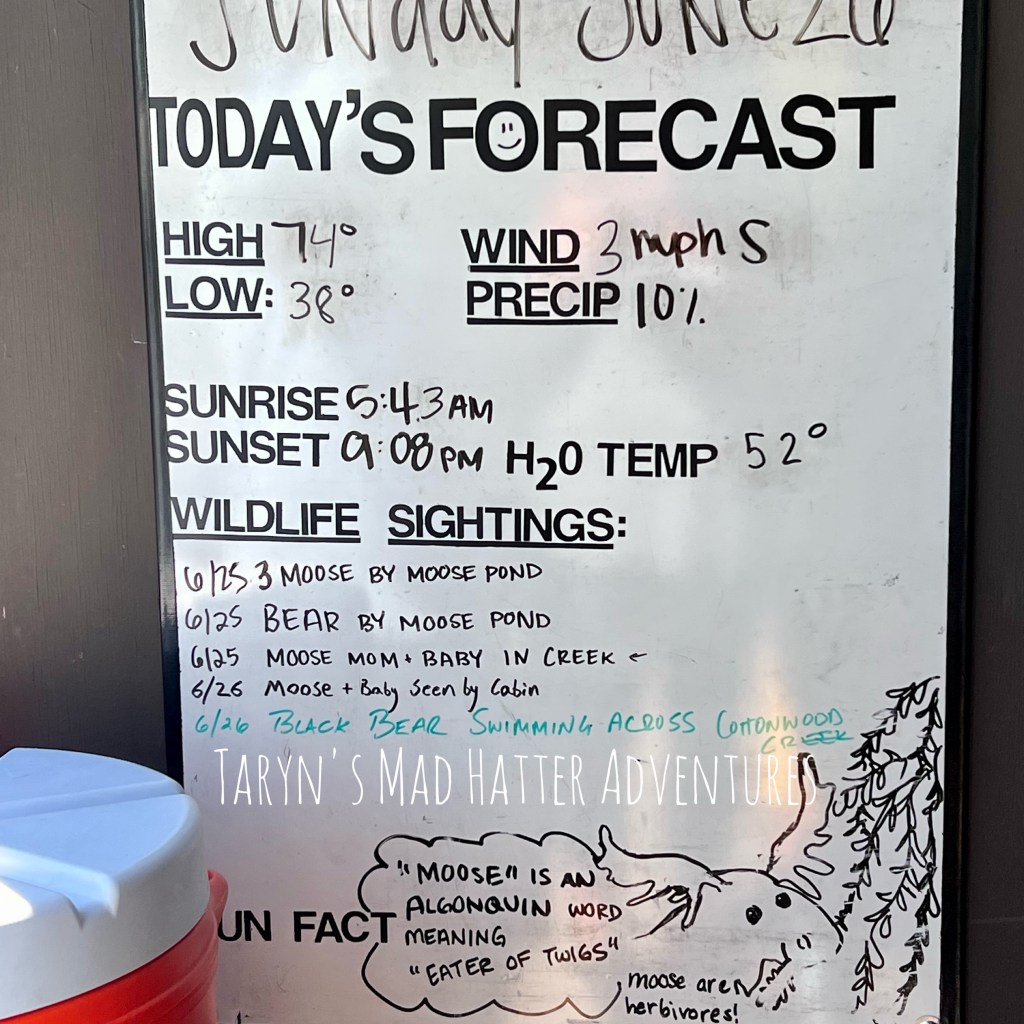 Sunday June 26
TODAY'S FORECAST
HIGH 74° WIND 3 mph S
LOW: 38° PRECIP 10%
SUNRISE 5:43 AM
SUNSET 9:08 PM H2O TEMP 52°
WILDLIFE SIGHTINGS:
6/25 3 MOOSE BY MOOSE POND
6/25 BEAR BY MOOSE POND
6/25 MOOSE MOM + BABY IN CREEK ←
6/26 Moose + Baby Seen by Cabin
6/26 BLACK BEAR SWIMMING ACROSS COTTONWOOD
CREEK
TARYN'S MAD HATTER ADVENTURES
UN FACT
"MOOSE" IS AN
ALGONQUIN WORD
MEANING
"EATER OF TWIGS"
moose are
herbivores!